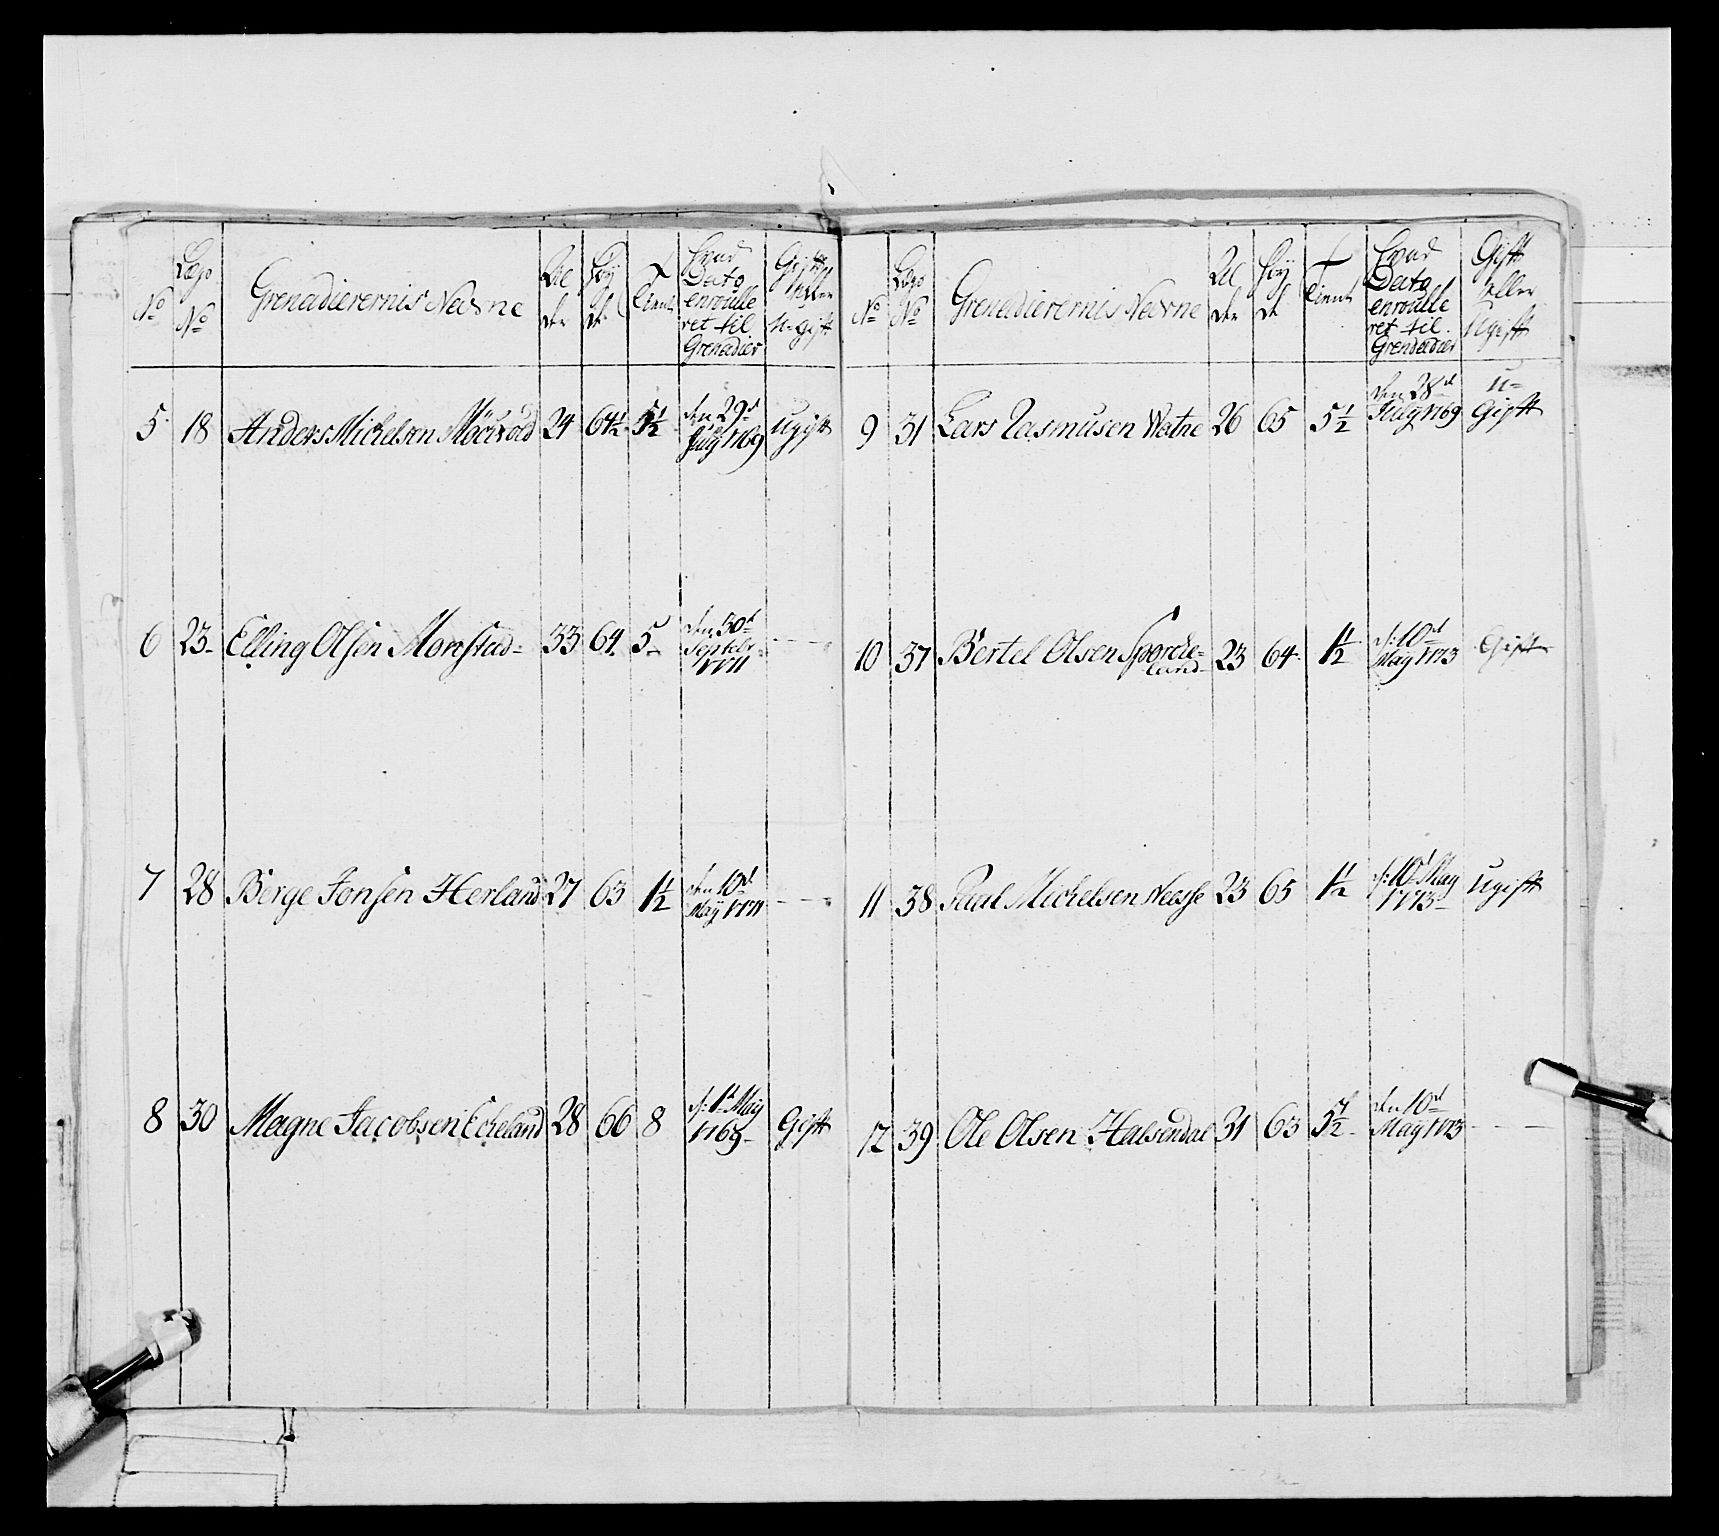 No
Lægs No
Grenadierernis Navne
Al der
Høy de
Tient
Hvad Dato enroulle ret til Grenadier
Gift eller U-gift
5 18 Anders Michelsen 24 64½ 5½ den 29d July 1769 Ugift
6 23 Elling Olsen Monstad 33 64 5 den 30d Septebr 1771 —
7 28 Berge Jonsen Herland 27 63 1½ den 10d May 1771 —
8 30 Magne Jacobsen Echeland 28 66 8 d: 1d May 1769 Gift
No
Lægs No
Grenadierernis Navne
Al der
Høy de
Tient
Hvad Dato enroulle ret til Grenadier
Gift eller Ugift
9 31 Lars Rasmusen Watne 26 65 5½ den 28d July 1769 U-Gift
10 37 Bertel Olsen 23 64 1½ d: 10d May 1773 Gift
11 38 Paul Michelsen Neesse 23 65 1½ d: 10d May 1773 Ugift
12 39 Ole Olsen Halsendal 31 63 den 10d May 1773 —